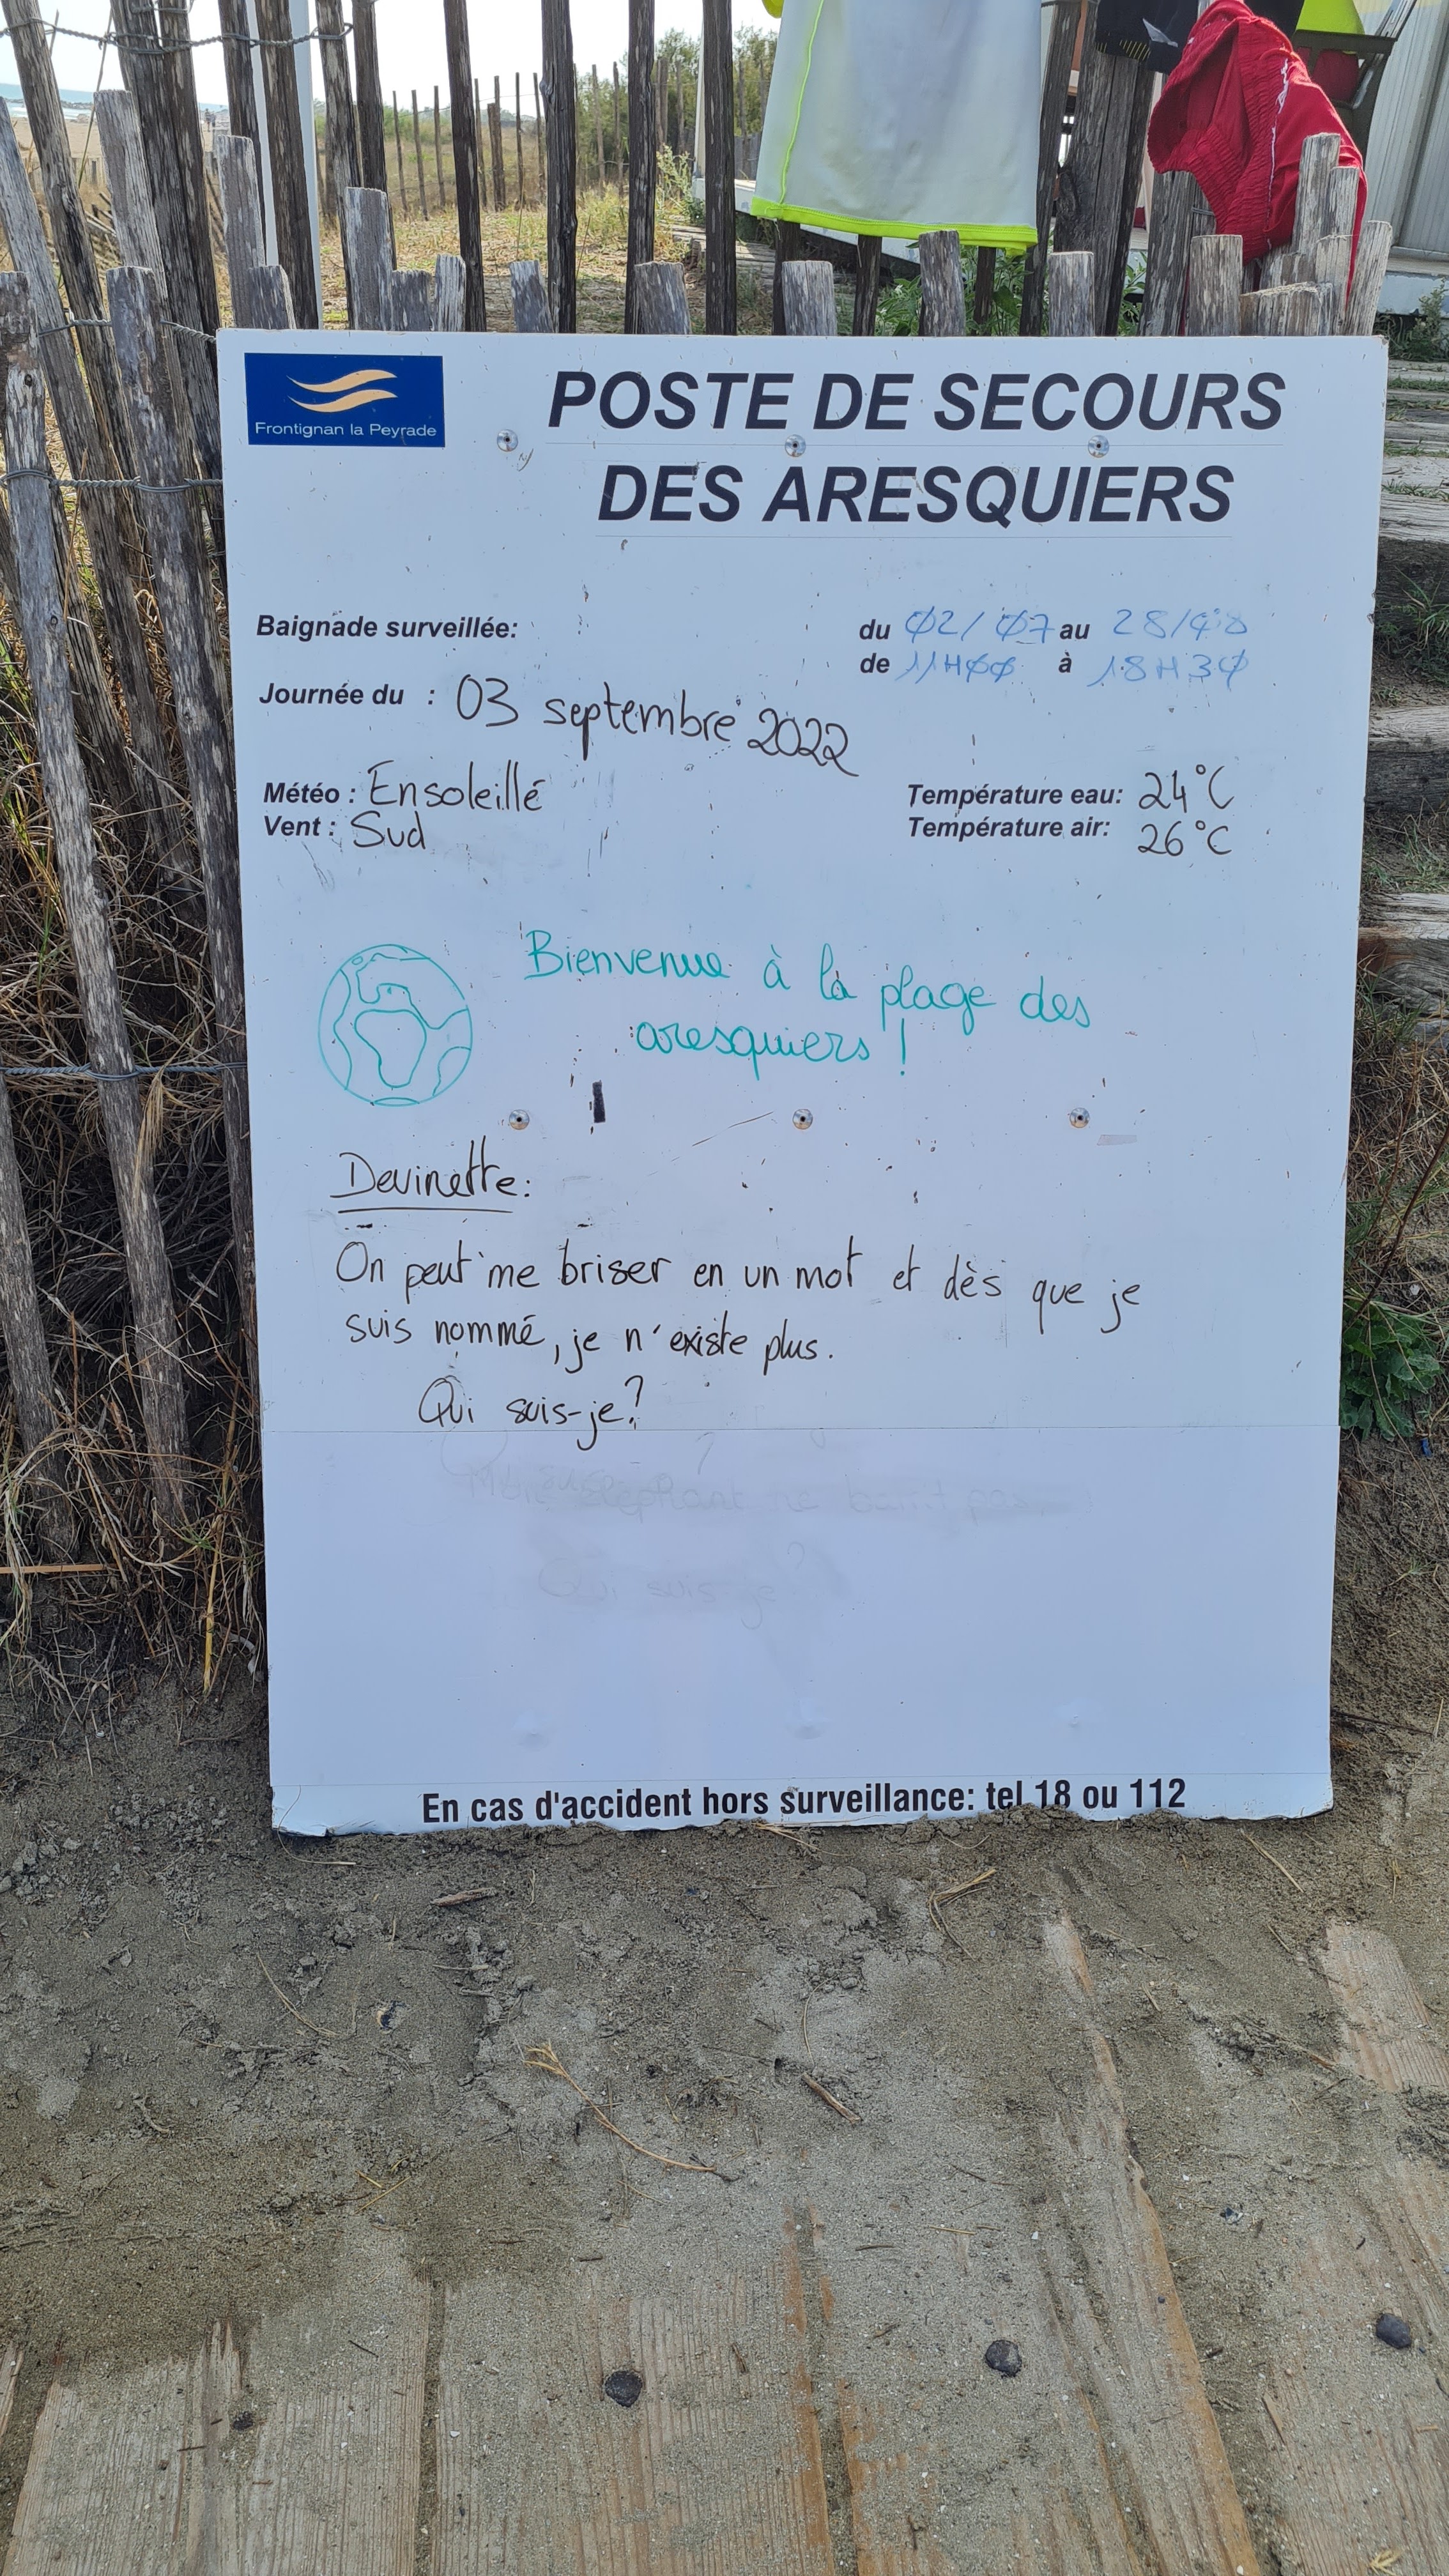 Frontignan la Peyrade
POSTE DE SECOURS
DES ARESQUIERS
Baignade surveillée:
du 02/07 au 28/
de 11H00 à 18H30
Journée du : 03 septembre 2022
Météo : Ensoleillé
Vent : Sud
Température eau: 24°C
Température air: 26°C
Bienvenue à la plage des
aresquiers !
Devinette:
On peut me briser en un mot et dès que je
suis nommé, je n'existe plus.
Qui suis-je?
éléphant barrit pas
Qui suis-je ?
En cas d'accident hors surveillance: tel 18 ou 112